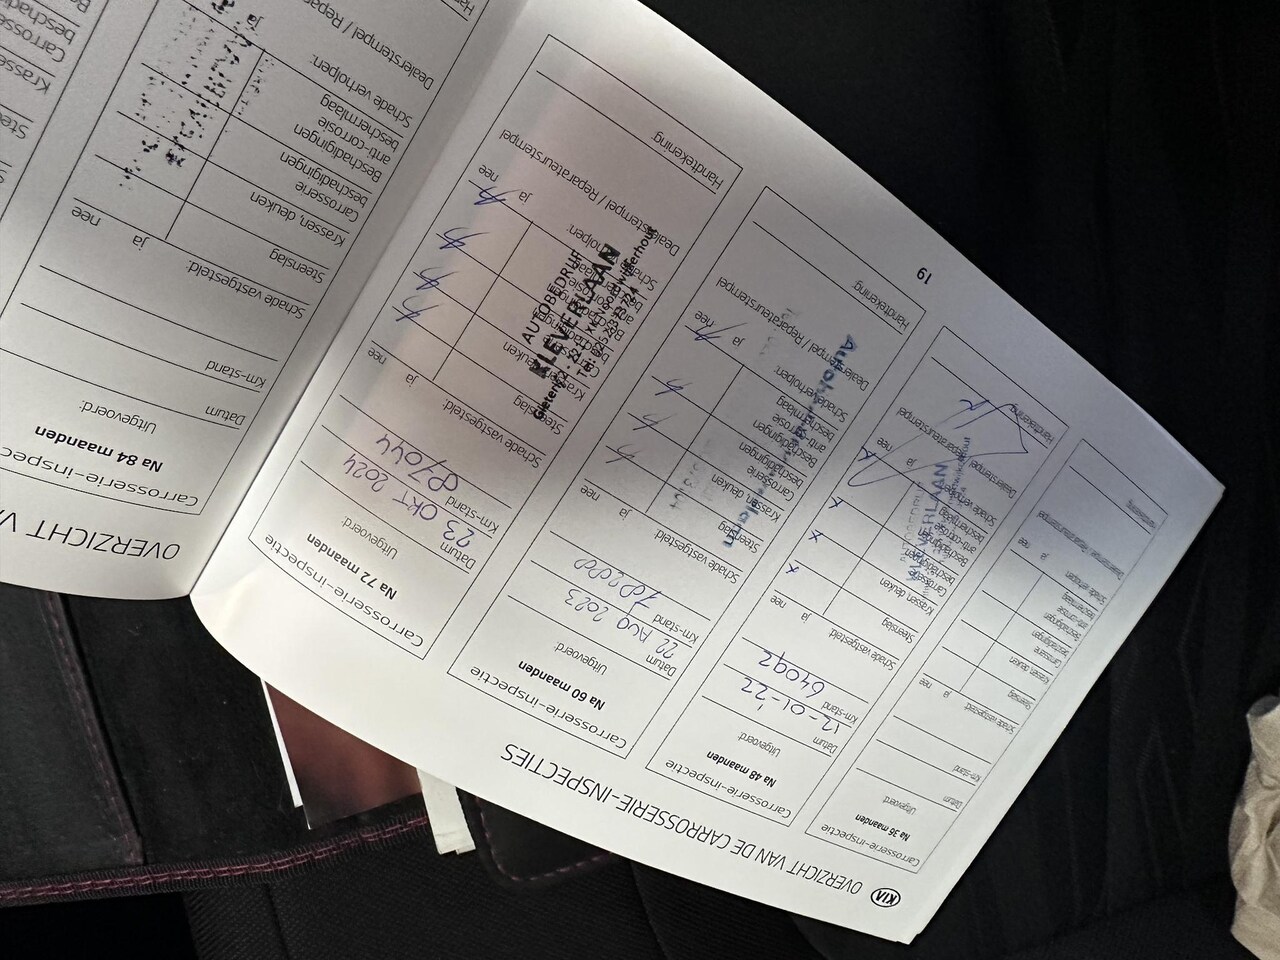 KIA
OVERZICHT VAN DE CARROSSERIE-INSPECTIES
Carrosserie-inspectie
Na 36 maanden
Uitgevoerd:
Datum
Km-stand
Schade vastgesteld:
ja
nee
Steenslag
Krassen, deuken
Carrosserie
beschadigingen
Beschadigingen
anti-corrosie
beschermlaag
Schade verholpen:
ja
nee
Dealerstempel / Reparateurstempel
Handtekening:
Carrosserie-inspectie
Na 48 maanden
Uitgevoerd:
Datum
12-01-22
Km-stand
64092
Schade vastgesteld:
ja
nee
Steenslag
Krassen, deuken
Carrosserie
beschadigingen
Beschadigingen
anti-corrosie
beschermlaag
Schade verholpen:
ja
nee
Dealerstempel / Reparateurstempel
AUTOBEDRIJF
KLEVERLAAN
Handtekening:
Carrosserie-inspectie
Na 60 maanden
Uitgevoerd:
Datum
22 AUG 2023
Km-stand
Schade vastgesteld:
ja
nee
Steenslag
Krassen, deuken
Carrosserie
beschadigingen
Beschadigingen
anti-corrosie
beschermlaag
Schade verholpen:
ja
nee
Dealerstempel / Reparateurstempel
Handtekening:
Carrosserie-inspectie
Na 72 maanden
Uitgevoerd:
Datum
23 OKT 2024
Km-stand
87044
Schade vastgesteld:
ja
nee
Steenslag
Krassen, deuken
Carrosserie
beschadigingen
Beschadigingen
anti-corrosie
beschermlaag
Schade verholpen:
ja
nee
Dealerstempel / Reparateurstempel
AUTOBEDRIJF
KLEVERLAAN
Handtekening:
19
OVERZICHT VA
Carrosserie-inspec
Na 84 maanden
Uitgevoerd:
Datum
Km-stand
Schade vastgesteld:
ja
nee
Steenslag
Krassen, deuken
Carrosserie
beschadigingen
Beschadigingen
anti-corrosie
beschermlaag
Schade verholpen:
ja
Dealerstempel / Repar
Han
Stee
Krasse
Carrosse
beschad